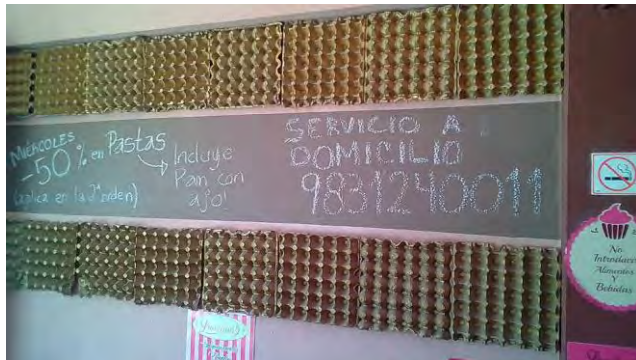 MIÉRCOLES
-50% en Pastas
(aplica en la 2ª orden)
Incluye
Pan con
ajo!
SERVICIO A
DOMICILIO
9831240011
No
Introducir
Alimentos
Y
Bebidas